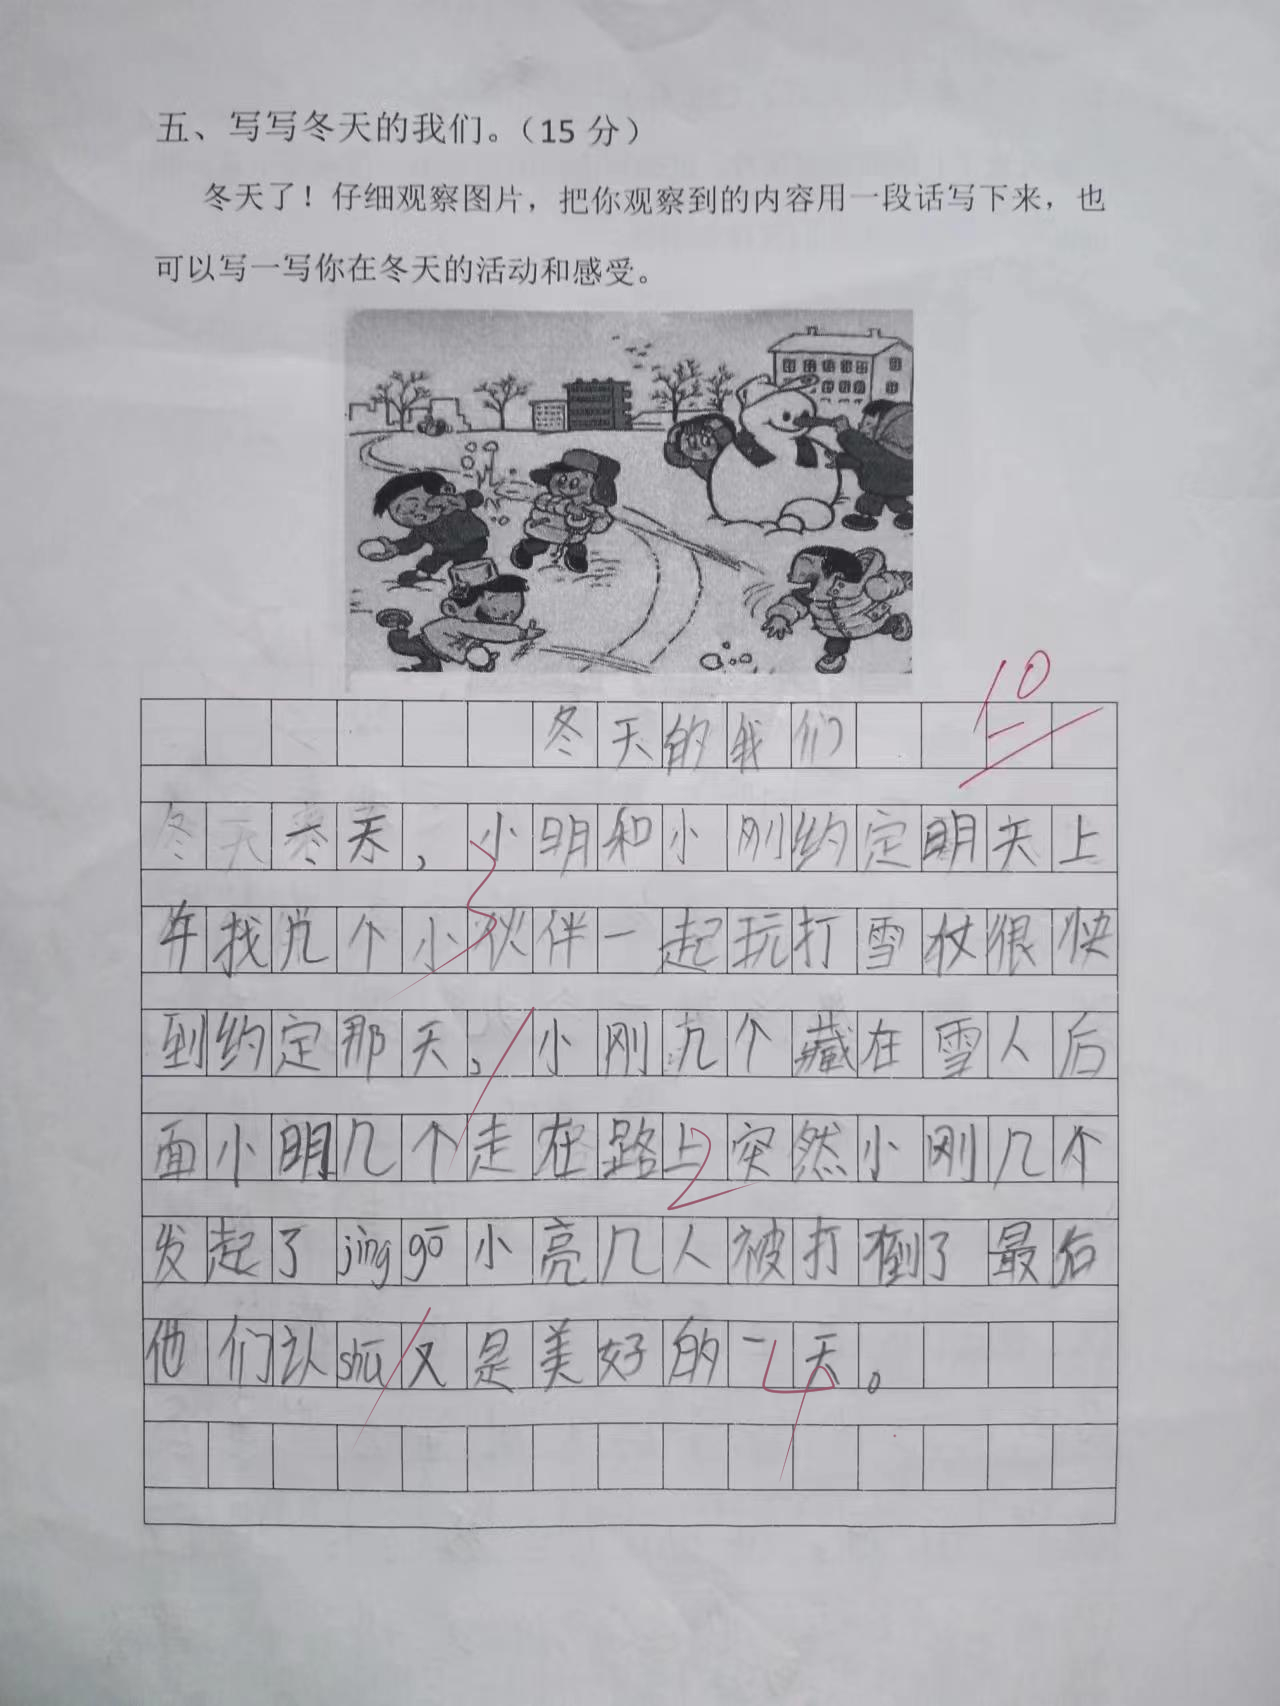 五、写写冬天的我们。（15 分）
冬天了！仔细观察图片，把你观察到的内容用一段话写下来，也
可以写一写你在冬天的活动和感受。
10
冬天的我们
冬天，小明和小刚约定明天上
午找几个小伙伴一起玩打雪杖很快
到约定那天，小刚几个藏在雪人后
面小明几个走在路上突然小刚几个
发起了jìng gō小亮几人被打倒了最后
他们认shū又是美好的一天。